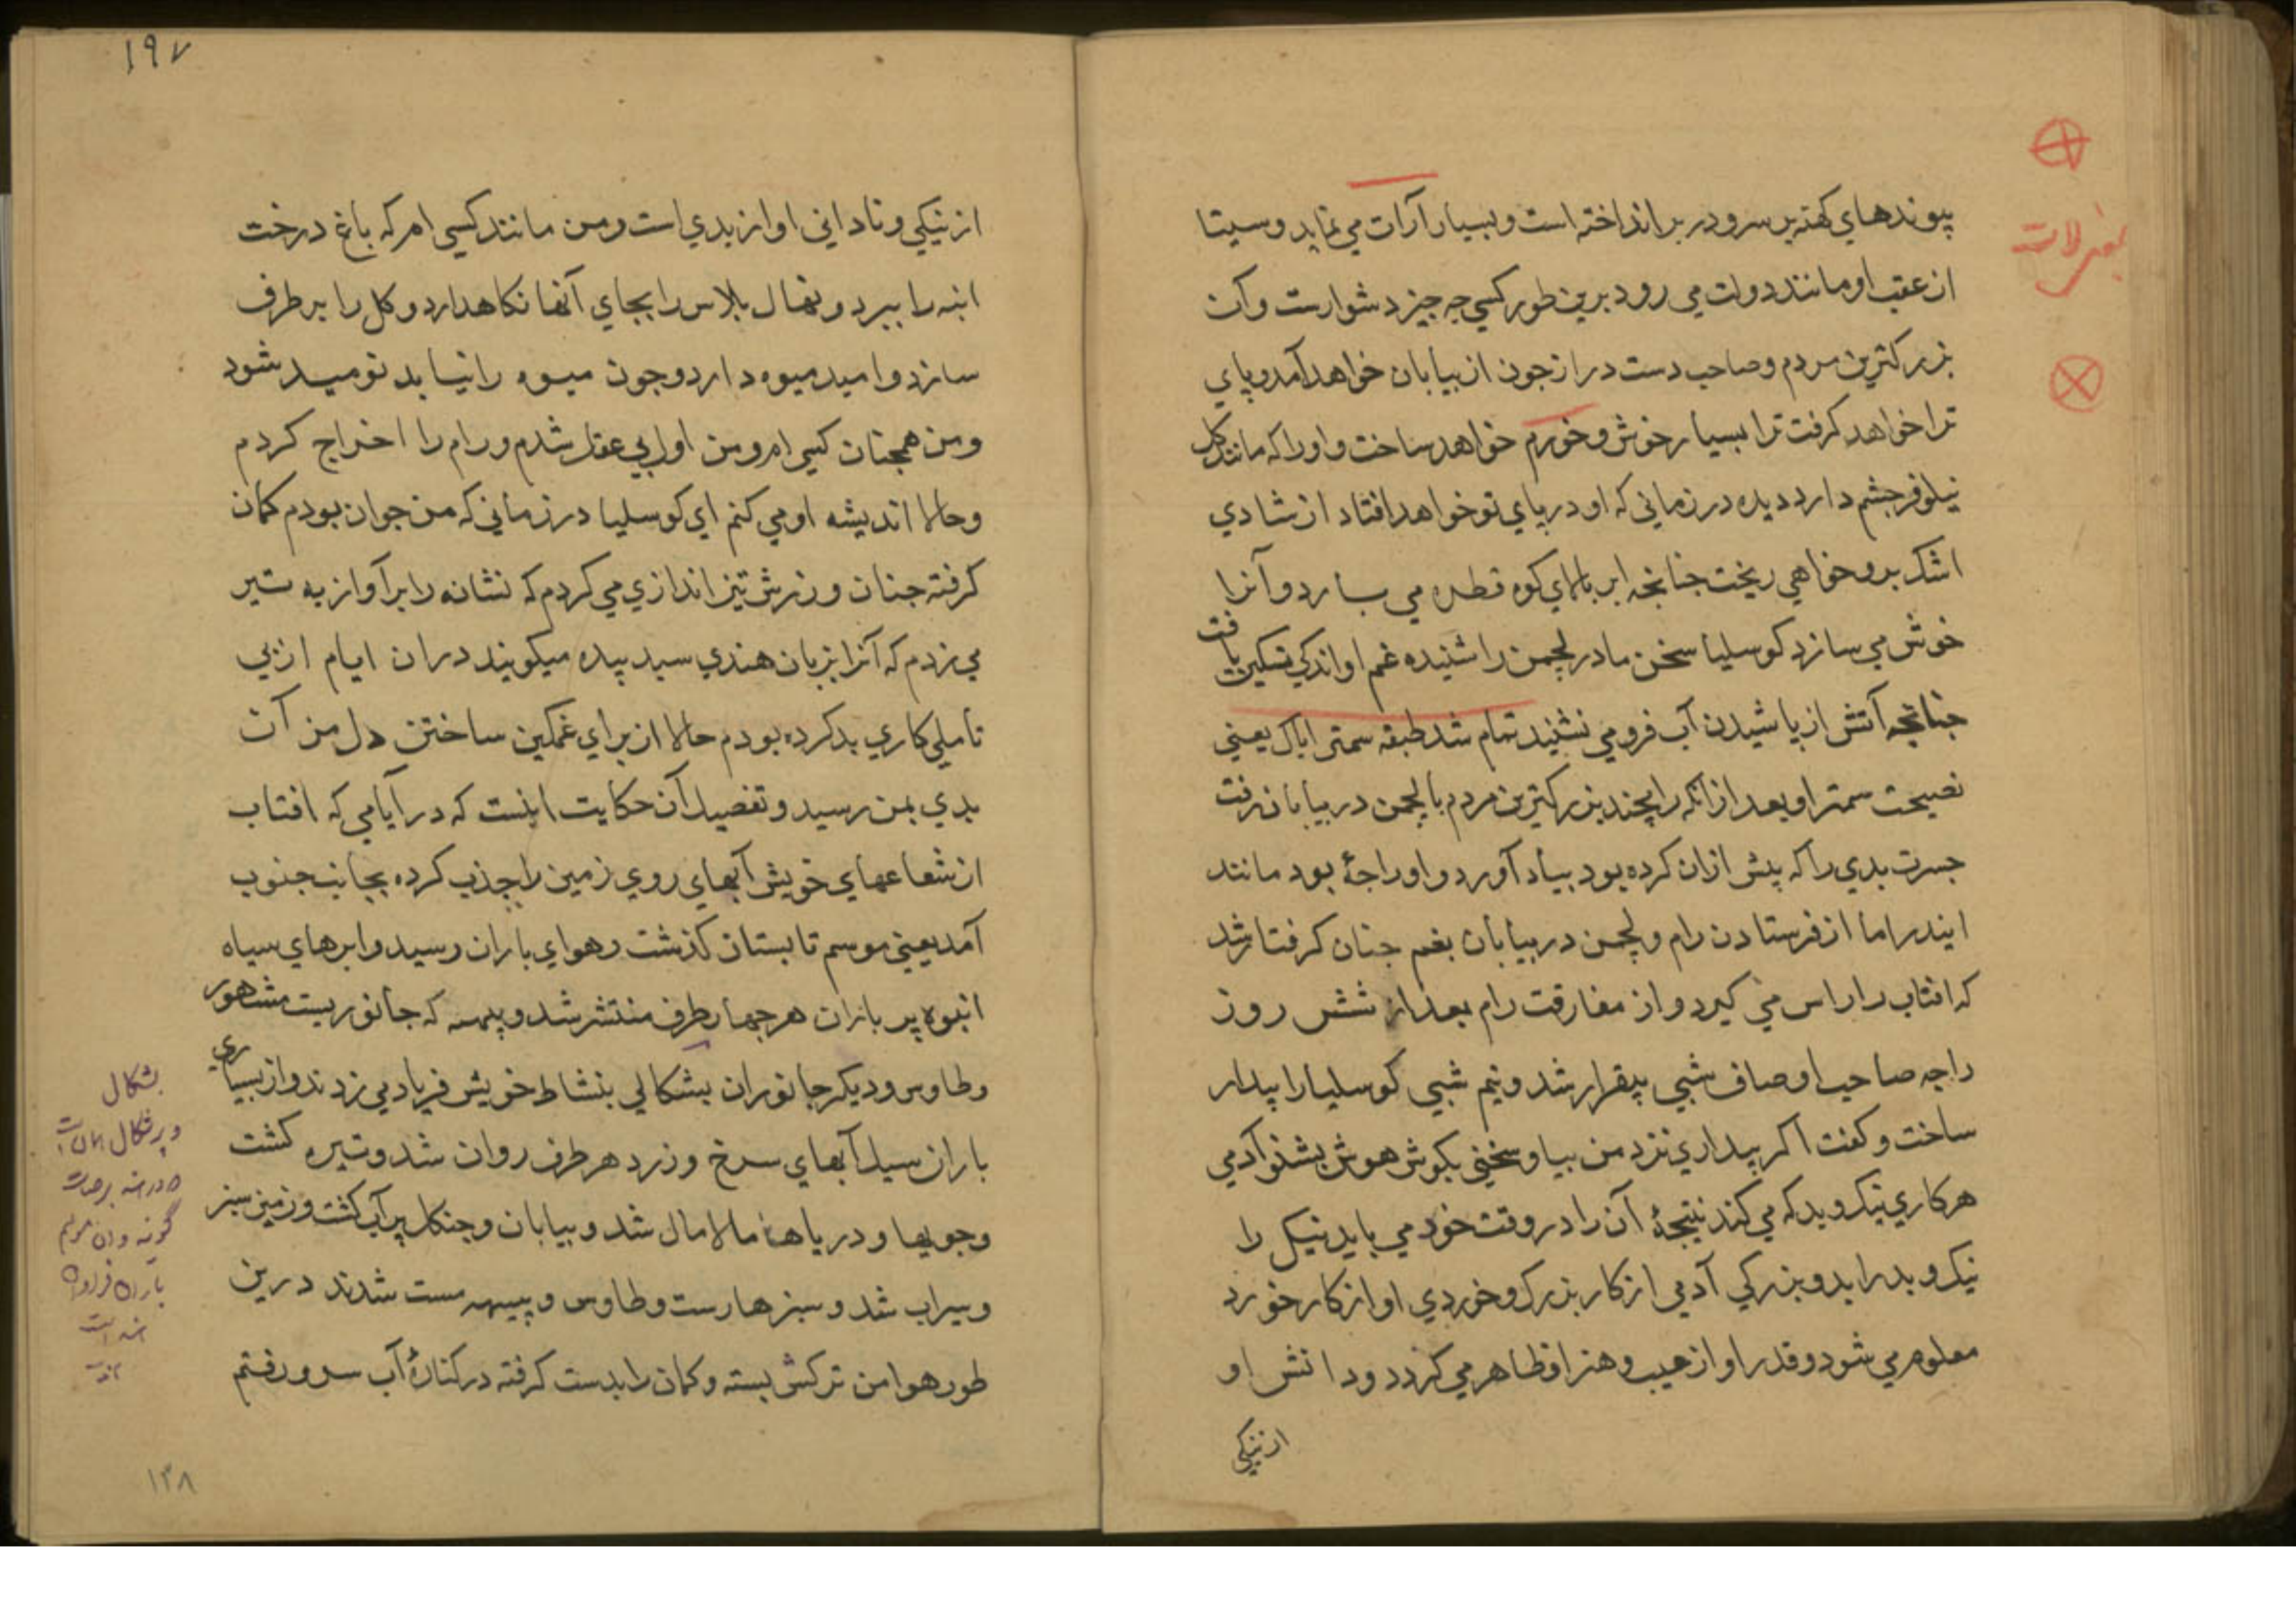 پیوندهاي کهنه بر سر و در بر انداخته است و بسیار آرات مي نماید و سیتا
از عقب او مانند دولت مي رود برین طور کسي جه جیز دشوارست و آن
بزرکترین مردم و صاحب دست دراز جون از بیابان خواهد آمد و پاي
ترا خواهد کرفت ترا بسیار خوش و خورم خواهد ساخت و او را که مانند کل
نیلوفر جشم دارد دیده در زماني که او در پاي تو خواهد افتاد از شادي
اشک برو خواهي ریخت جنانجه ابر بالاي کوه قطره مي بارد و آنرا
خوش مي سازد کوسلیا سخن مادر لچمن را شنیده غم او اندکي تسکین یافت
جنانجه آتش از پاشیدن آب فرو مي نشیند تمام شد طبقه سمترا باک یعني
نصیحت سمترا و بعد ازانکه رامچند بزرکترین مردم با لچمن در بیابان رفت
جسرت بدي را که پیش ازان کرده بود بیاد آورد و او راجۀ بود مانند
ایندر اما از فرستادن رام و لچمن در بیابان بغم جنان کرفتار شد
که افتاب را راس مي کیرد و از مفارقت رام بعد از شش روز
راجه صاحب اوصاف شبي بیقرار شد و نیم شبي کوسلیا را بیدار
ساخت و کفت اکر بیداري نزد من بیا و سخني بکوش هوش بشنو آدمي
هر کاري نیک و بد که مي کند نتیجۀ آن را در وقت خود مي یابد نیکي را
نیک و بد را بد و بزرکي آدمي از کار بزرک و خوردي او از کار خورد
معلوم مي شود و قدر او از عیب و هنر او ظاهر مي کردد و دانش او
از نیکي
۱۹۷
از نیکي و ناداني او از بدي است و من مانند کسي ام که باغ درخت
انبه را ببرد و نهال پلاس را بجاي آنها نکاهدارد و کل را بر طرف
سازد و امید میوه دارد و جون میوه را نیابد نومید شود
و من همجنان کسي ام و من اول بي عقل شدم و رام را اخراج کردم
و حالا اندیشه او مي کنم اي کوسلیا در زماني که من جوان بودم کمان
کرفته جنان ورزش تیر اندازي مي کردم که نشانه را بر آواز به تیر
مي زدم که آنرا بزبان هندي سبد بیده میکویند دران ایام از بي
تاملي کاري بد کرده بودم حالا از براي غمکین ساختن دل من آن
بدي بمن رسید و تفصیل آن حکایت اینست که در آیامي که افتاب
از شعاعهاي خویش آبهاي روي زمین را جذب کرده بجانب جنوب
آمد یعني موسم تابستان کذشت و هواي باران رسید و ابرهاي سیاه
انبوه پر باران هر جهار طرف منتشر شد و پپیهه که جانوریست مشهور
و طاوس و دیکر جانوران بشکالي بنشاط خویش فریاد مي زدند و از بسیاري
باران سیل آبهاي سرخ و زرد هر طرف روان شد و تیره کشت
و جویها و دریاها مالامال شد و بیابان و جنکل پر آب کشت و زمین سبز
و سیراب شد و سبزها رست و طاوس و پپیهه مست شدند درین
طور هوا من ترکش بسته و کمان را بدست کرفته در کنارۀ آب سرو رفتم
بشکال
و برشکال
باران
است
۱۳۸